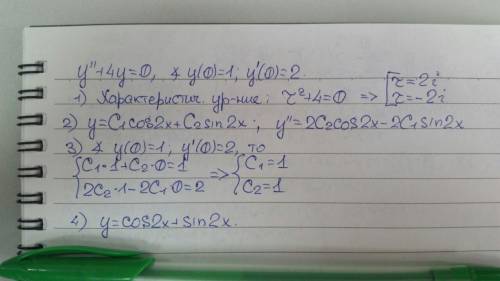 y''+4y=0, ∢ y(0)=1; y'(0)=2.
1) Характеристич. ур-ние: τ²+4=0 => [τ=2i
[τ=-2i
2) y=C₁cos2x+C₂sin2x; y''=2C₂cos2x-2C₁sin2x
3) ∢ y(0)=1; y'(0)=2, то
{C₁·1+C₂·0=1 => {C₁=1
{2C₂·1-2C₁0=2 {C₂=1
4) y=cos2x+sin2x.